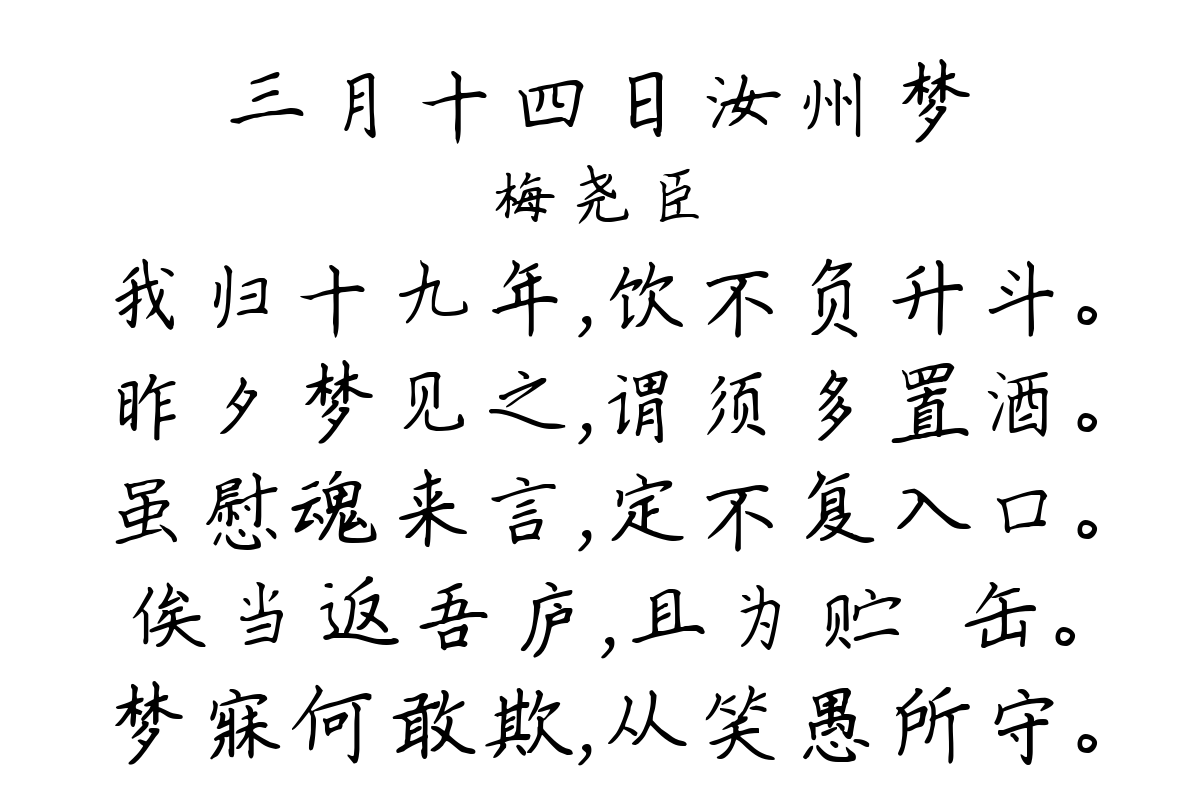 三月十四日汝州梦
梅尧臣
我归十九年,饮不负升斗。
昨夕梦见之,谓须多置酒。
虽慰魂来言,定不复入口。
俟当返吾庐,且为贮 缶。
梦寐何敢欺,从笑愚所守。